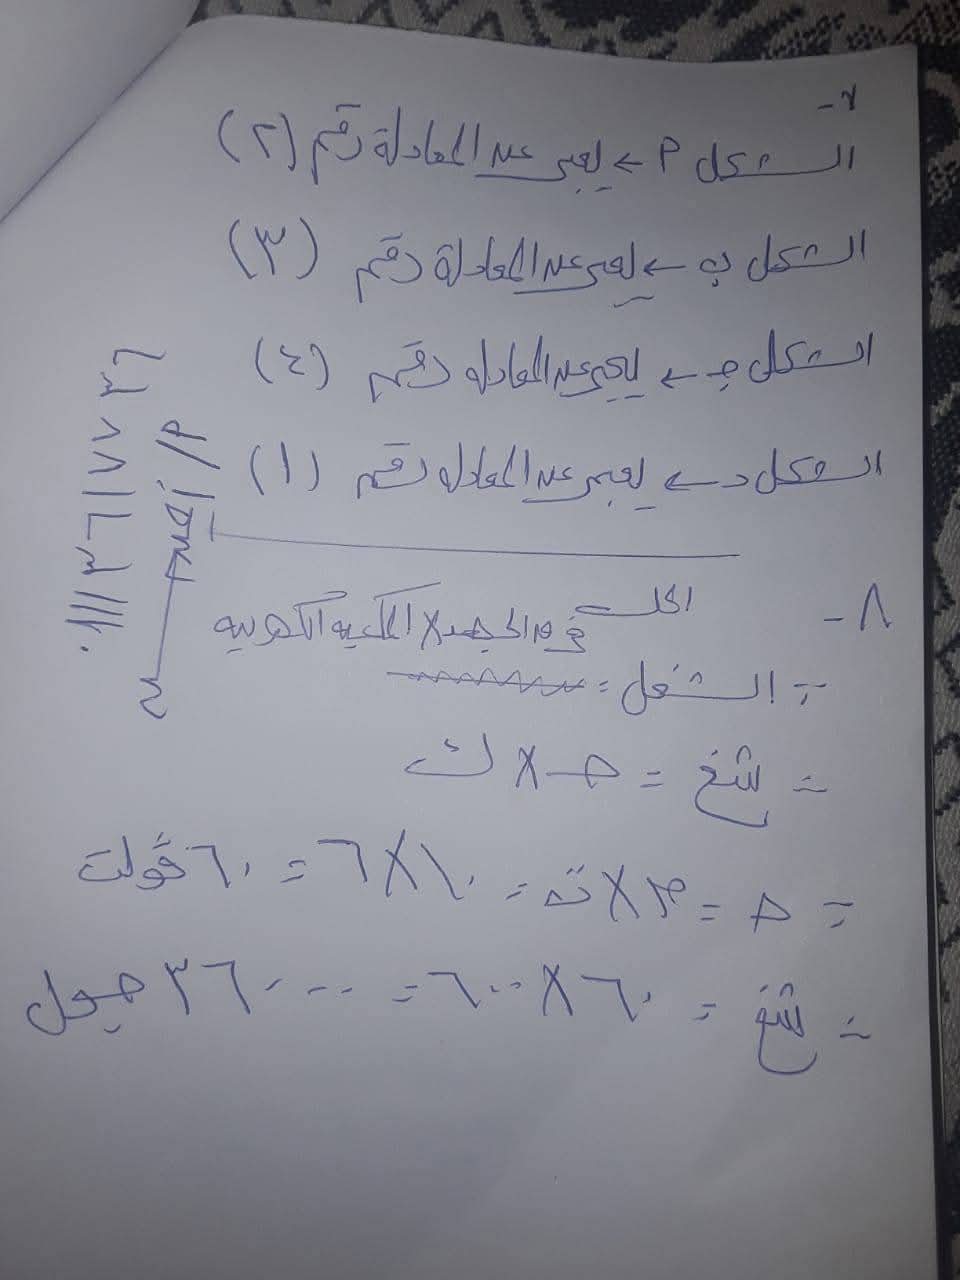 ٧-
الشكل م ← يعبر عن المعادلة رقم (٢)
الشكل ب ← يعبر عن المعادلة رقم (٣)
الشكل جـ ← يعبر عن المعادلة رقم (٤)
الشكل د ← يعبر عن المعادلة رقم (١)
٨- الحل
فرق الجهد × الكمية الكهربية
∵ الشغل =
∴ شغ = جـ × ك
∵ جـ = م × ت = ١٠ × ٦ = ٦٠ ڤولت
∴ شغ = ٦٠ × ٦٠٠ = ٣٦٠٠٠ جول
م/
٠١١١٣٦١٧٧٣٦